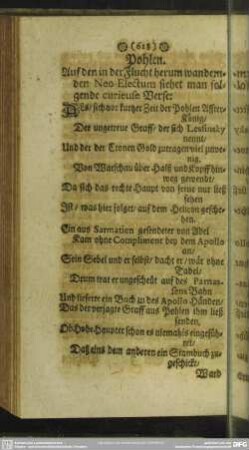 (618)
Pohlen.
Auf den in der Flucht herum wandern-
den Neo-Electum siehet man fol-
gende curieuse Verse:
Als sich vor kurtzer Zeit der Pohlen After-
König/
Der ungetreue Graff/ der sich Lesfinsky
nennt/
Und der der Cronen Gold zutragen viel zu we-
nig.
Von Warschau über Halß und Kopff hin-
weg gewendt/
Da sich das rechte Haupt von ferne nur ließ
sehen
Ist/ was hier folget/ auf dem Helicon gesche-
hen.
Ein aus Sarmatien gesendeter von Adel
Kam ohne Compliment bey dem Apollo
an/
Sein Sebel und er selbst/ dacht er/ wär ohne
Tadel/
Drum trat er ungescheut auf des Parnas-
sens Bahn
Und lieferte ein Buch in des Apollo Händen/
Das der verjagte Graff aus Pohlen ihm ließ
senden.
Ob Hohe Häupter schon es niemahls eingefüh-
ret/
Daß eins dem anderen ein Stambuch zu-
geschickt/
Ward